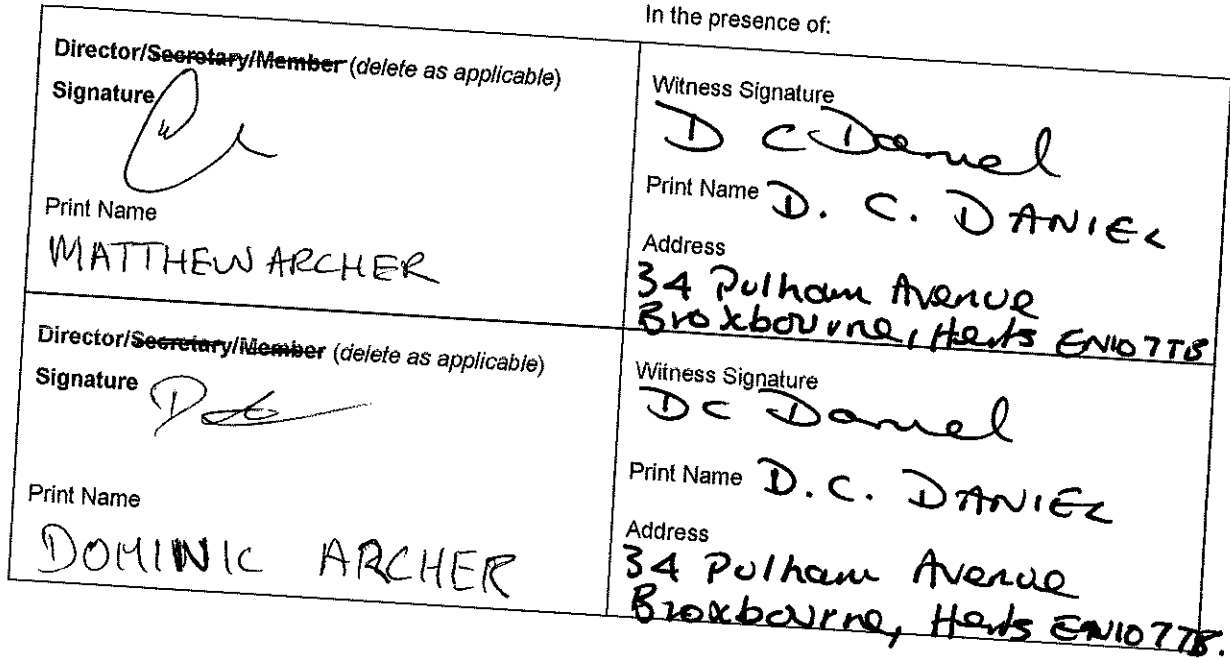 In the presence of:
Director/Secretary/Member (delete as applicable)
Signature
Print Name
MATTHEW ARCHER
Witness Signature
D C Daniel
Print Name D. C. DANIEL
Address
34 Pulham Avenue
Broxbourne, Herts EN10 7TB
Director/Secretary/Member (delete as applicable)
Signature
Print Name
DOMINIC ARCHER
Witness Signature
DC Daniel
Print Name D.C. DANIEL
Address
34 Pulham Avenue
Broxbourne, Herts EN10 7TB.